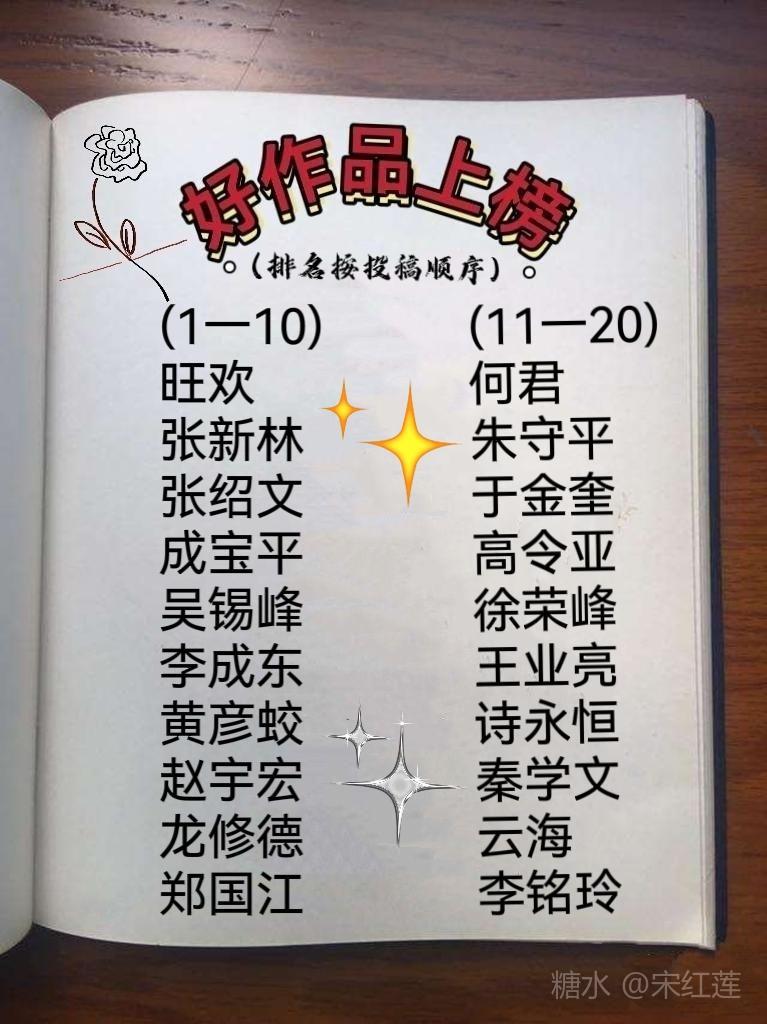 好作品上榜
。（排名按投稿顺序）。
(1一10)
旺欢
张新林
张绍文
成宝平
吴锡峰
李成东
黄彦蛟
赵宇宏
龙修德
郑国江
(11一20)
何君
朱守平
于金奎
高令亚
徐荣峰
王业亮
诗永恒
秦学文
云海
李铭玲
糖水 @宋红莲